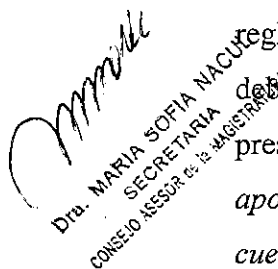 Dra. MARIA SOFIA NACUL
SECRETARIA
CONSEJO ASESOR de la MAGISTRATURA
reg
deb
pres
apo
cue